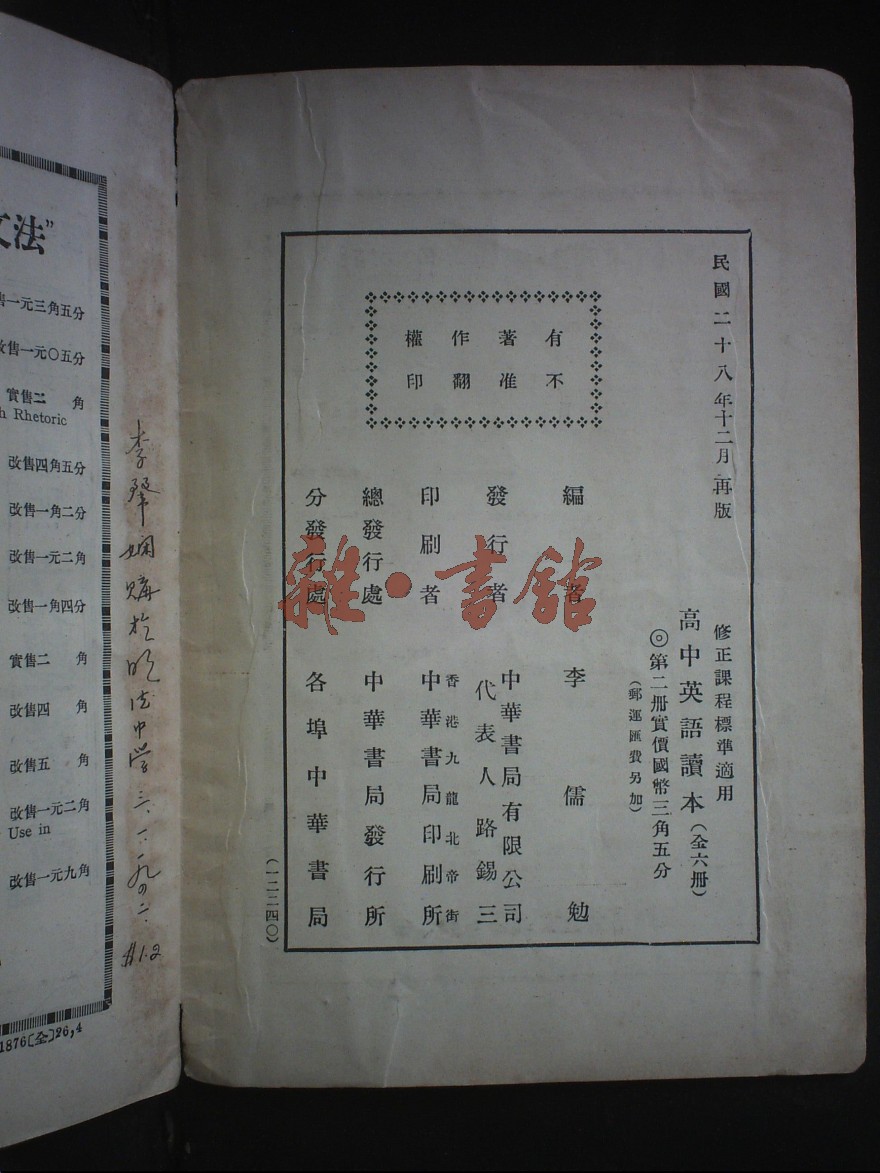 民國二十八年十二月再版
修正課程標準適用
高中英語讀本（全六冊）
◎第二冊實價國幣三角五分
（郵運匯費另加）
有著作權
不准翻印
編者 李儒勉
發行者 中華書局有限公司
代表人路錫三
印刷者 香港九龍北帝街
中華書局印刷所
總發行處 中華書局發行所
分發行處 各埠中華書局
（一二二四〇）
雜·書館
文法”
售一元三角五分
改售一元〇五分
實售二角
Rhetoric
改售四角五分
改售一角二分
改售一元二角
改售一角四分
實售二角
改售四角
改售五角
改售一元二角
Use in
改售一元九角
1876〔全〕26,4
李 購於 中学 三、一、一九四二、
$1.2